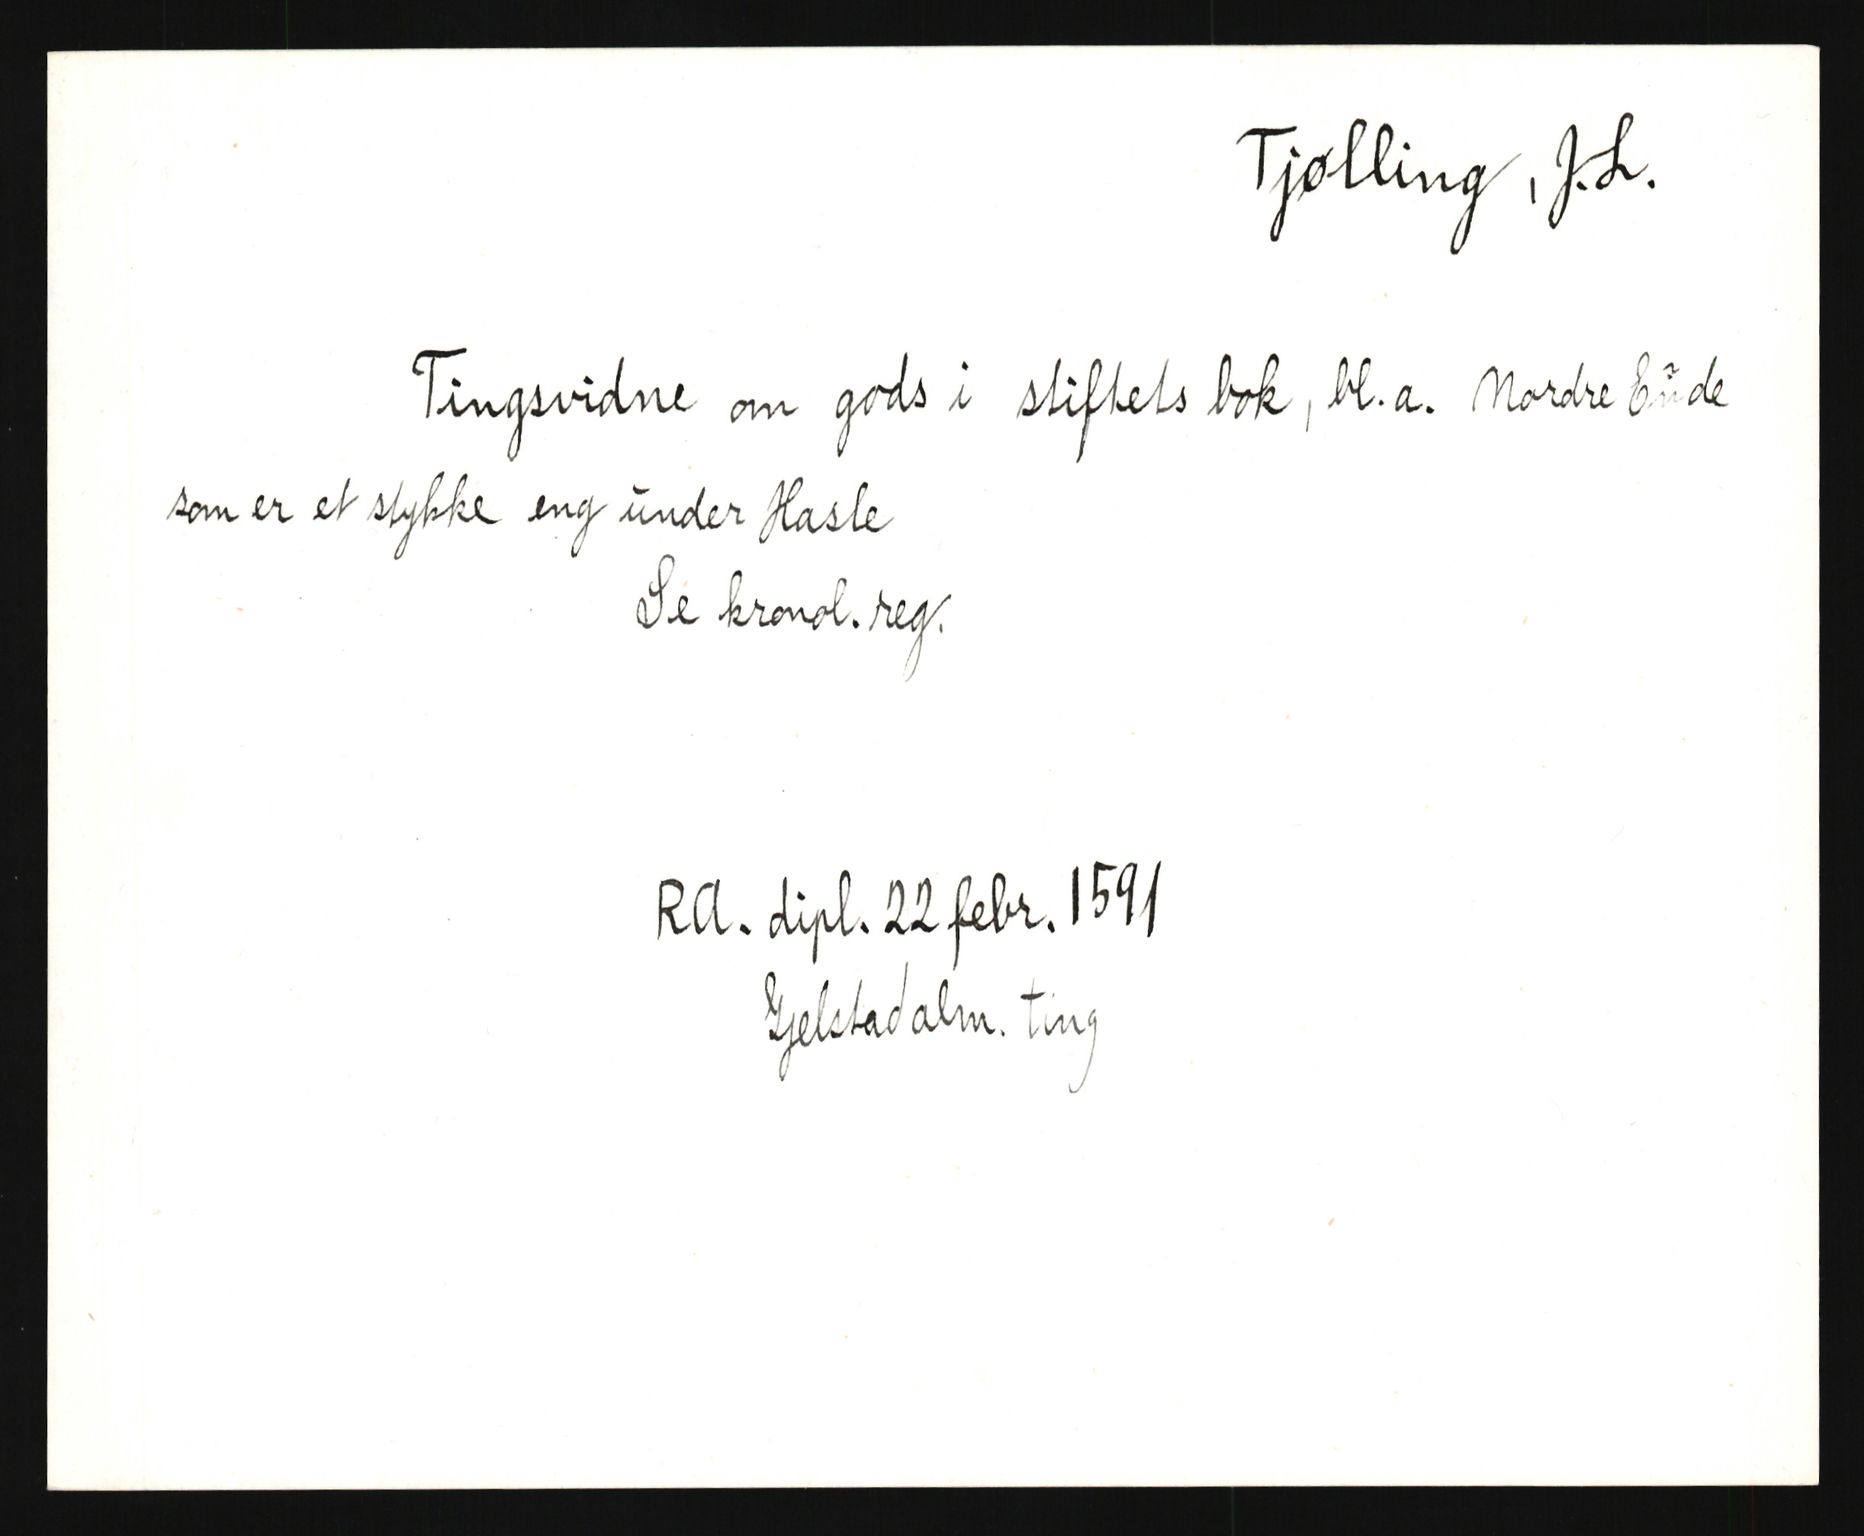 Tjølling, J.L.
Tingsvidne om gods i stiftets bok, bl.a. Nordre
som er et stykke eng under Hasle
Se kronol. reg.
RA. dipl. 22 febr. 1591
Gjelstad alm. ting